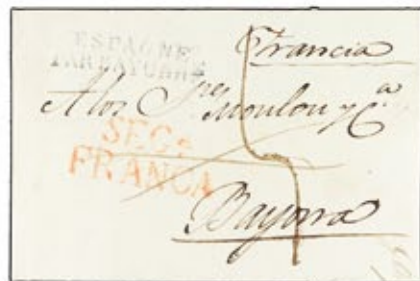 ESPAGNE
PAR BAYONNE
Francia
A los Sres Moulon y Ca
SEGa
FRANCA
Bayona
5